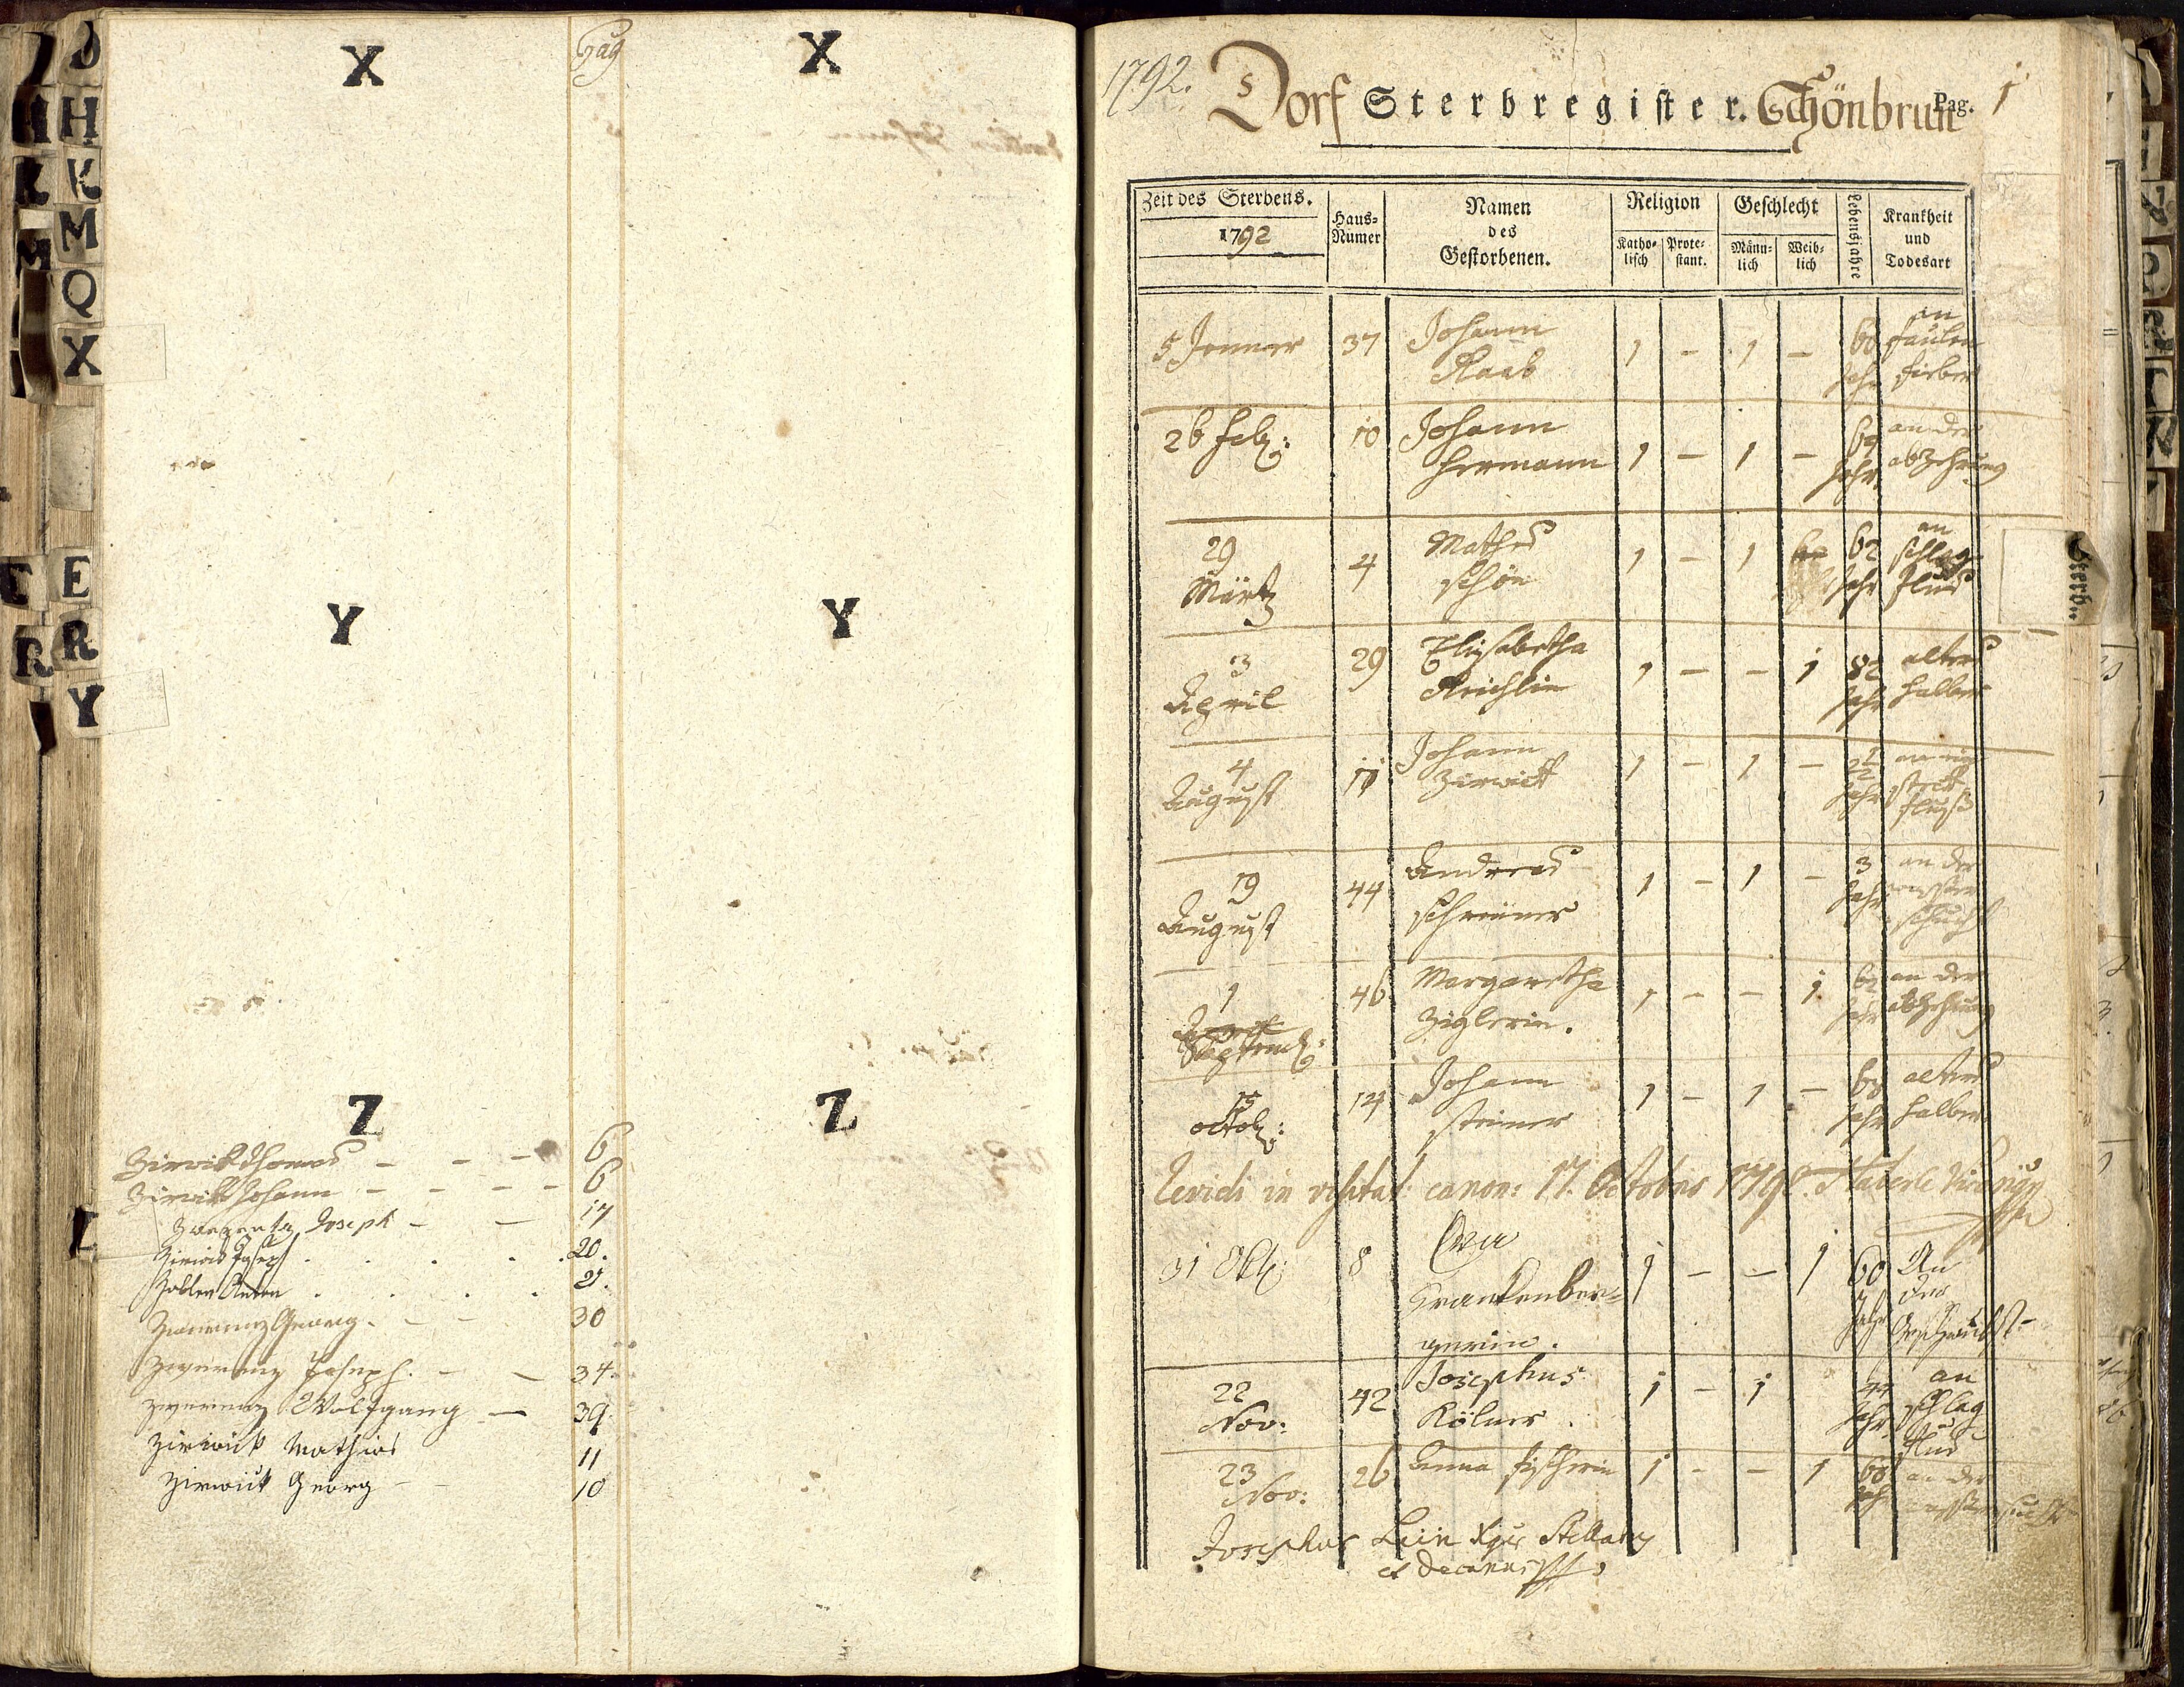 X
Pag
X
Y
Y
Z
Z
Zirwik Thomas - - - 6
Zirwik Johann - - - - 6
Zwerentz Joseph - - 17
Zirwick Joseph . . . . 20.
Zobler Anton . . . . 21.
Zwerenz Georg. - - 30
Zwerenz Joseph. - - 34.
Zwerenz Wolfgang - 39.
Zirwick Mathias 11
Zirwick Georg - - 10
H
K
M
Q
X
E
R
Y
1792. Dorf Sterbregister. Schönbrun Pag. 1
Zeit des Sterbens.
1792
Haus-Numer
Namen
des
Gestorbenen.
Religion
Katho-lisch
Prote-stant.
Geschlecht
Männ-lich
Weib-lich
Lebensjahre
Krankheit
und
Todesart
5 Jenner 37 Johann Raab 1 - 1 - 60 Jahr an faulen fieber
26 feb: 10 Johann Hermann 1 - 1 - 69 Jahr an der abzehrung
29 Märtz 4 Matheus Schön 1 - 1 62 Jahr an schlag fluß
3 April 29 Elisabetha Reichlin 1 - - 1 82 Jahr alters halber
4 August 11 Johann Zirwick 1 - 1 - 2 1/2 Jahr steck fluß
19 August 44 Andreas Schreiner 1 - 1 - 3 Jahr an der
1 Septemb: 46 Margaretha Ziglerin. 1 - - 1 62 Jahr an der abzehrung
15 octob: 14 Johann Steiner 1 - 1 - 68 Jahr alters halber
Revidi in visitat: canon: 17. Octobris 1792.
31 Okt: 8 Eva Krankenber=gerin. 1 - - 1 60 Jahr An der
22 Nov: 42 Josephus Kölner. 1 - 1 44 Jahr an schlag fluß
23 Nov: 26 Anna fischerin 1 - - 1 60 Jahr an der
Josephus
et Decanus
Sterb..